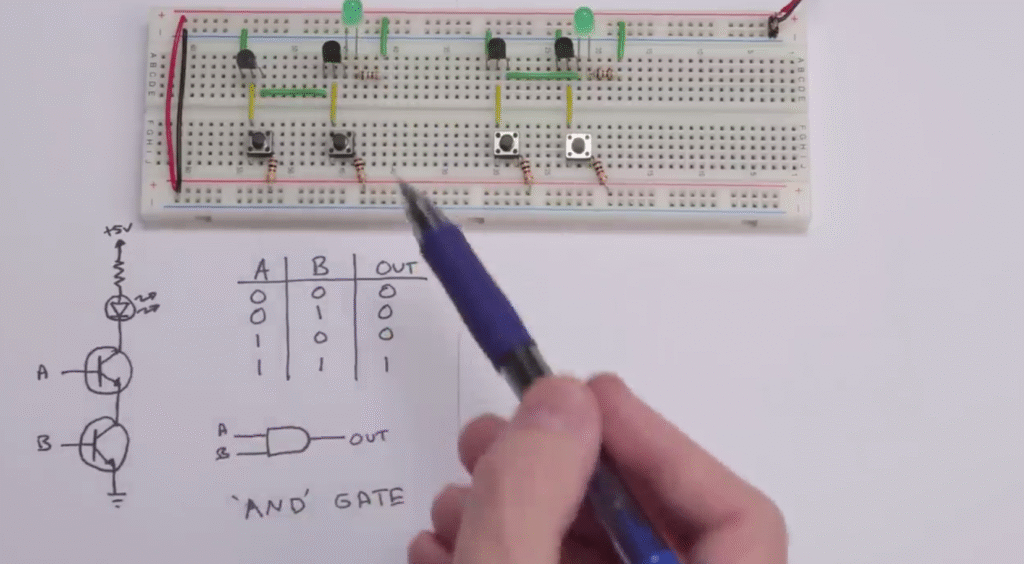 +5V
A
B
A B OUT
0 0 0
0 1 0
1 0 0
1 1 1
A
B
OUT
'AND' GATE